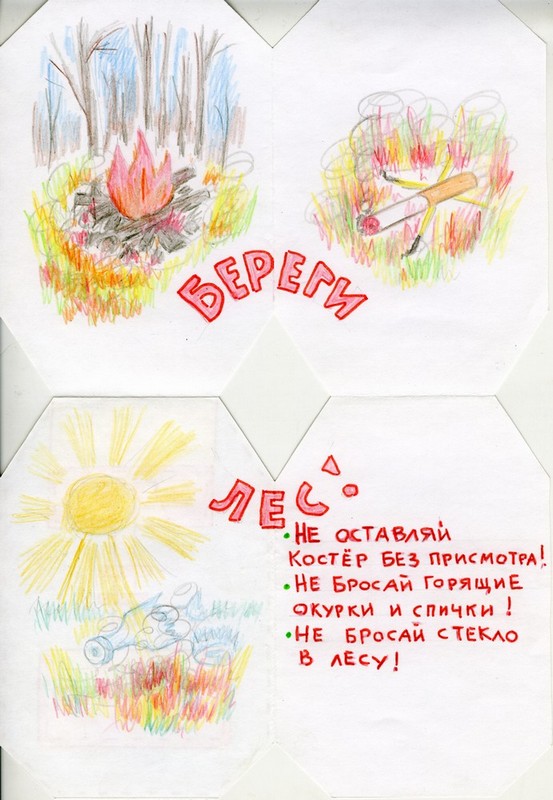 БЕРЕГИ
ЛЕС!
• НЕ ОСТАВЛЯЙ
КОСТЁР БЕЗ ПРИСМОТРА!
• НЕ БРОСАЙ ГОРЯЩИЕ
ОКУРКИ И СПИЧКИ!
• НЕ БРОСАЙ СТЕКЛО
В ЛЕСУ!